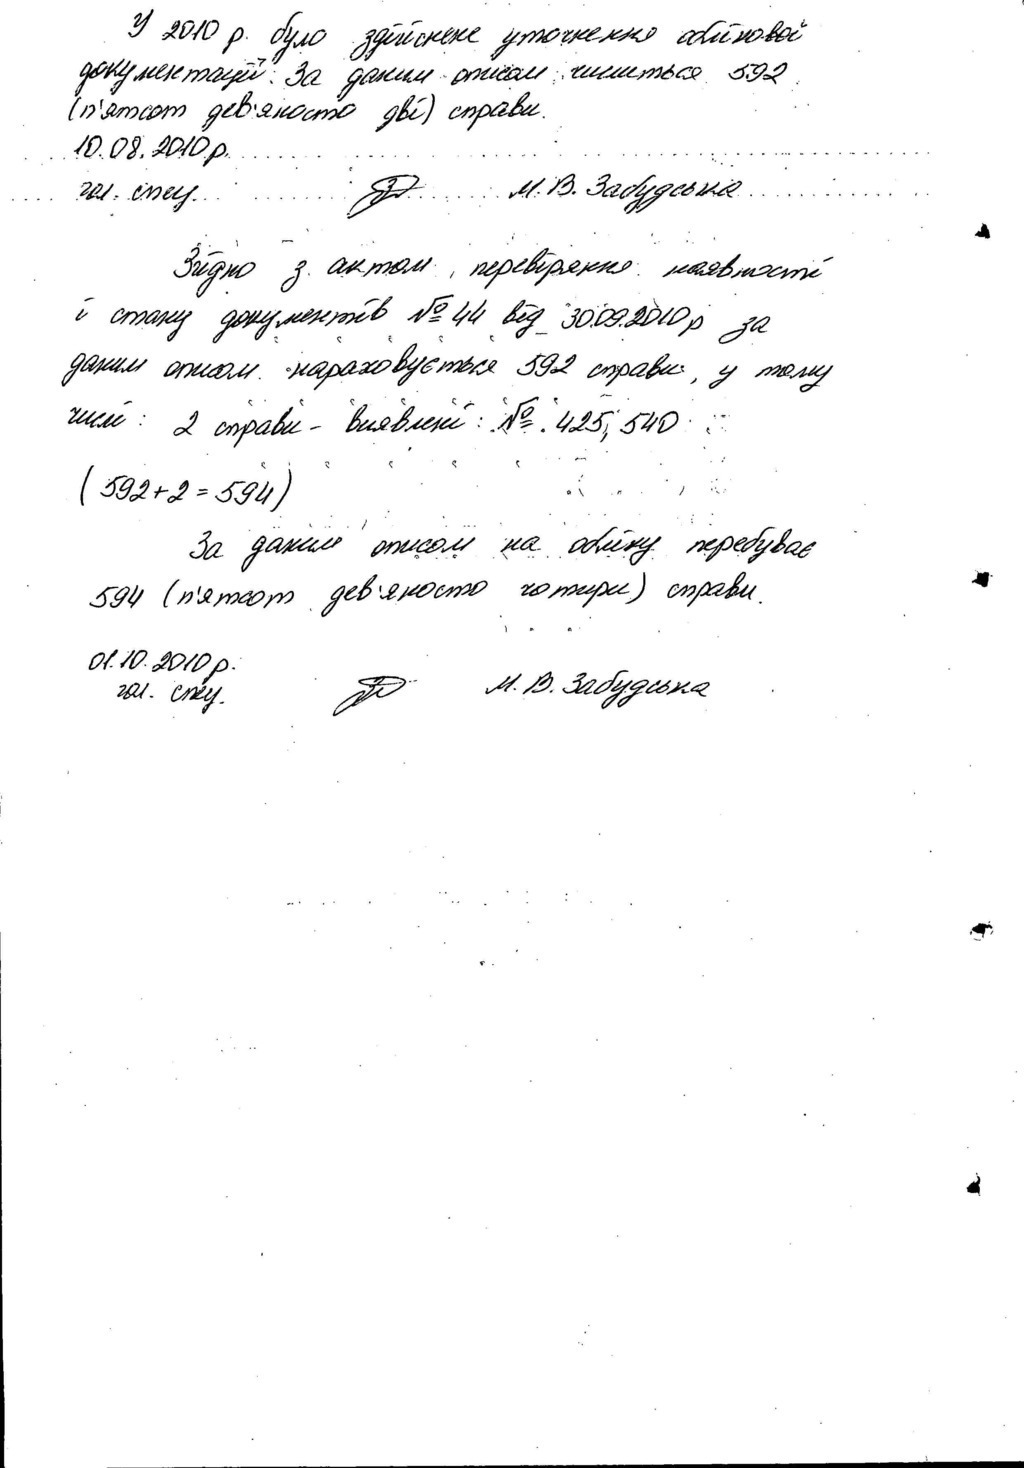 У 2010 р. було здійснене уточнення облікової
документації. За даним описом числиться 592
(п'ятсот дев'яносто дві) справи.
10.08.2010р.
гол. спец. М.В. Забудська
Згідно з актом перевіряння наявності
і стану документів № 44 від 30.09.2010р за
даним описом нараховується 592 справи, у тому
числі: 2 справи - виявлені: № 425, 540
(592+2=594)
За даним описом на обліку перебуває
594 (п'ятсот дев'яносто чотири) справи.
01.10.2010р.
гол. спец. М.В. Забудська